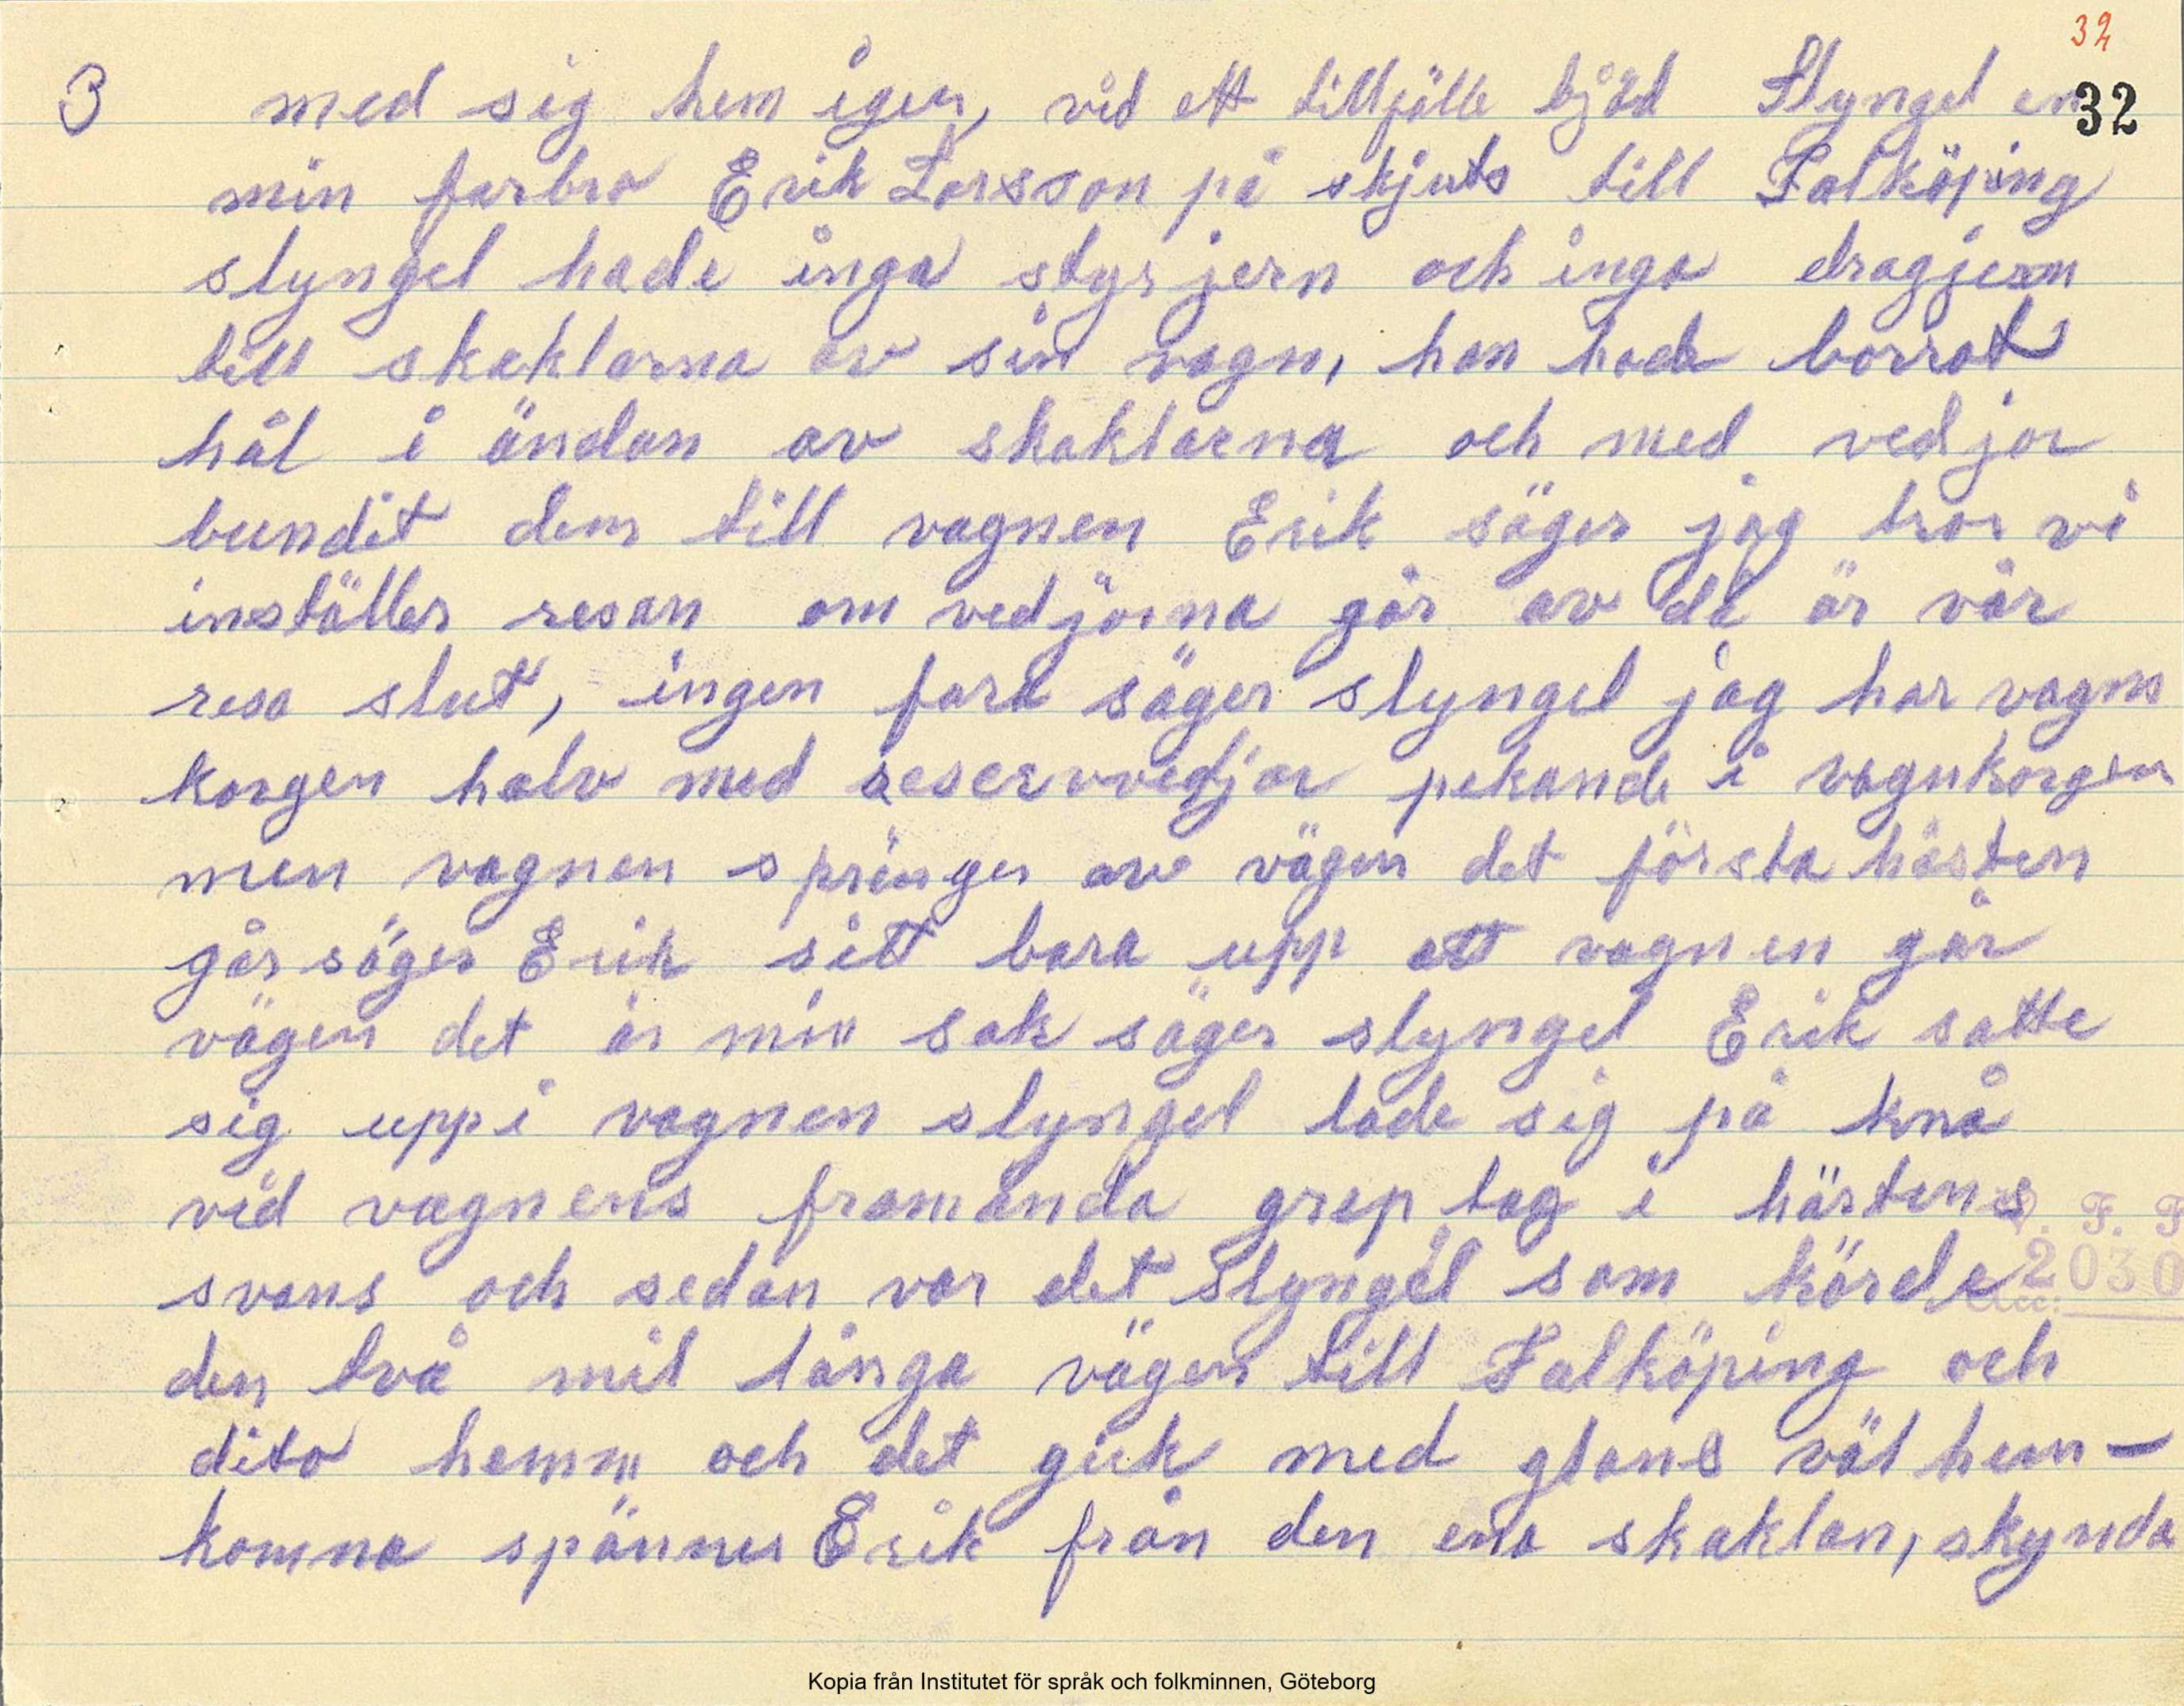 32
32
3 med sig hem igen, vid ett tillfälle bjöd Slyngel en
min farbro Erik Larsson på skjuts till Falköping
slyngel hade inga styrjern och inga dragjern
till skaklarna av sin vagn, han hade borrat
hål i ändan av skaklarna och med vedjor
bundit dem till vagnen Erik säger jag tror vi
inställer resan om vedjorna går av då är vår
resa slut, ingen fara säger slyngel jag har vagns
korgen halv med reservvedjor pekande i vagnkorgen
men vagnen springer av vägen det första hästen
går säger Erik sitt bara upp att vagnen går
vägen det är min sak säger slyngel Erik satte
sig upp i vagnen slyngel lade sig på knä
vid vagnens framända grep tag i hästens
svans och sedan var det Slyngel som körde
den två mil långa vägen till Falköping och
dito hemm och det gick med glans väl hem-
komna spänner Erik från den ena skaklan, skynda
F.
2030
Kopia från Institutet för språk och folkminnen, Göteborg